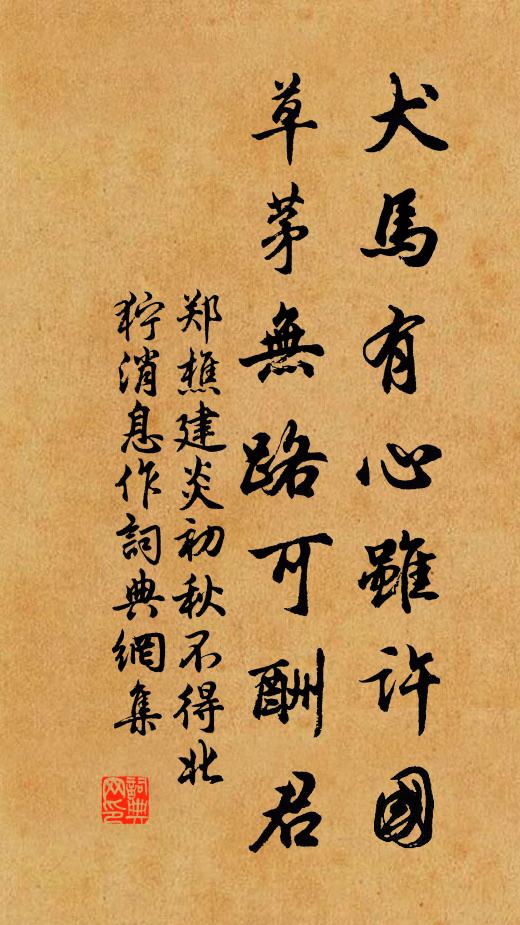 犬馬有心雖許國
草茅無路可酬君
郑樵建炎初秋不得北
狞消息作詞典網集
詞典网印